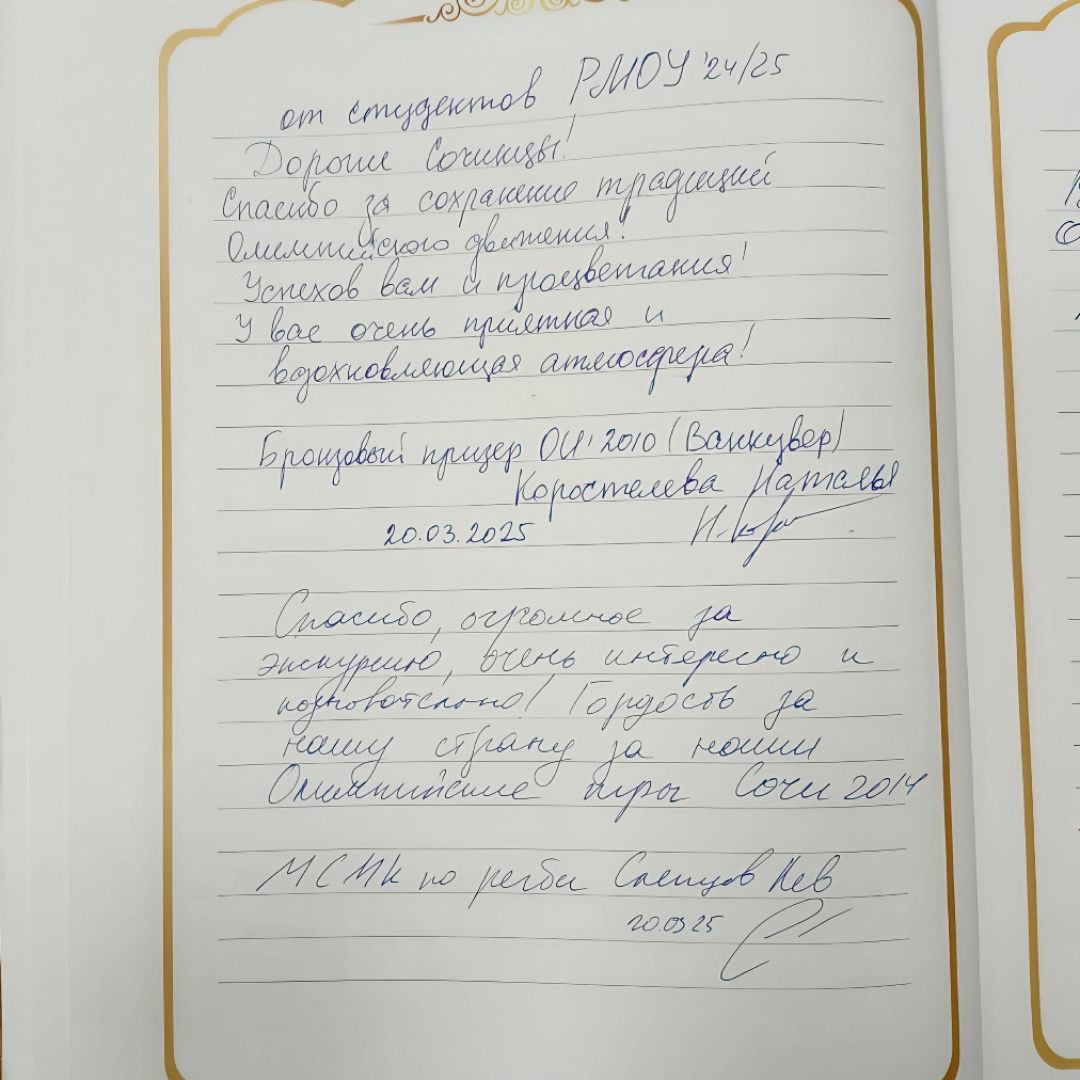 от студентов РМОУ '24/25
Дорогие Сочинцы!
Спасибо за сохранение традиций
Олимпийского движения!
Успехов вам и процветания!
У вас очень приятная и
вдохновляющая атмосфера!
Бронзовый призер ОИ'2010 (Ванкувер)
Коростелева Наталья
20.03.2025
Спасибо, огромное за
экскурсию, очень интересно и
познавательно! Гордость за
нашу страну за наши
Олимпийские игры Сочи 2014
МСМК по регби Слепцов Лев
20.03 25